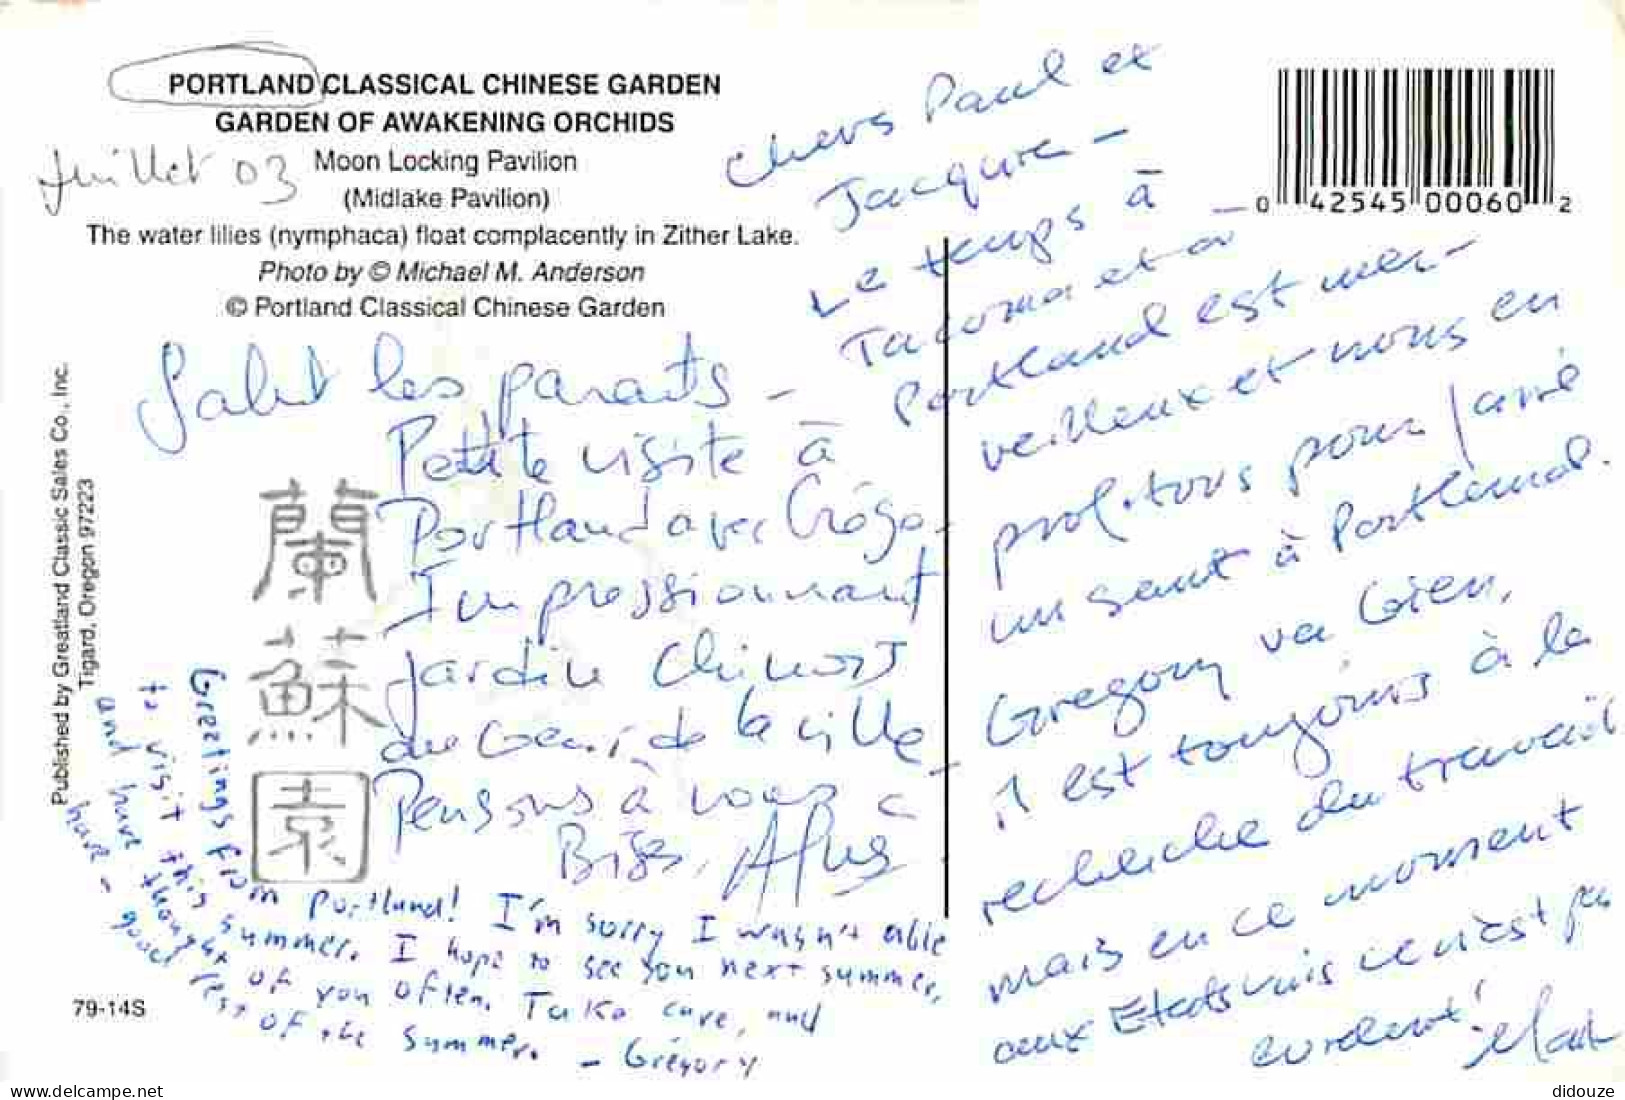 PORTLAND CLASSICAL CHINESE GARDEN
GARDEN OF AWAKENING ORCHIDS
Juillet 03
Moon Locking Pavilion
(Midlake Pavilion)
The water lilies (nymphaca) float complacently in Zither Lake.
Photo by © Michael M. Anderson
© Portland Classical Chinese Garden
Published by Greatland Classic Sales Co., Inc.
Tigard, Oregon 97223
蘭
蘇
園
79-14S
0 42545 00060 2
Salut les parents -
Petite visite à
Portland avec Grégo.
Impressionnant
jardin Chinois
au coeur de la ville -
Pensons à vous
Bises,
Greetings from Portland! I'm sorry I wasn't able
to visit this summer. I hope to see you next summer,
and have thought of you often. Take care, and
have - good rest of the summer. - Grégory
Chers Paul et
Jacquie -
Le temps à
Tacoma et à
Portland est mer-
veilleux et nous en
profitons pour faire
un saut à Portland.
Gregory va bien,
il est toujours à la
recherche du travail
mais en ce moment
aux Etats unis ce n'est pas
évident!
delcampe.net
didouze